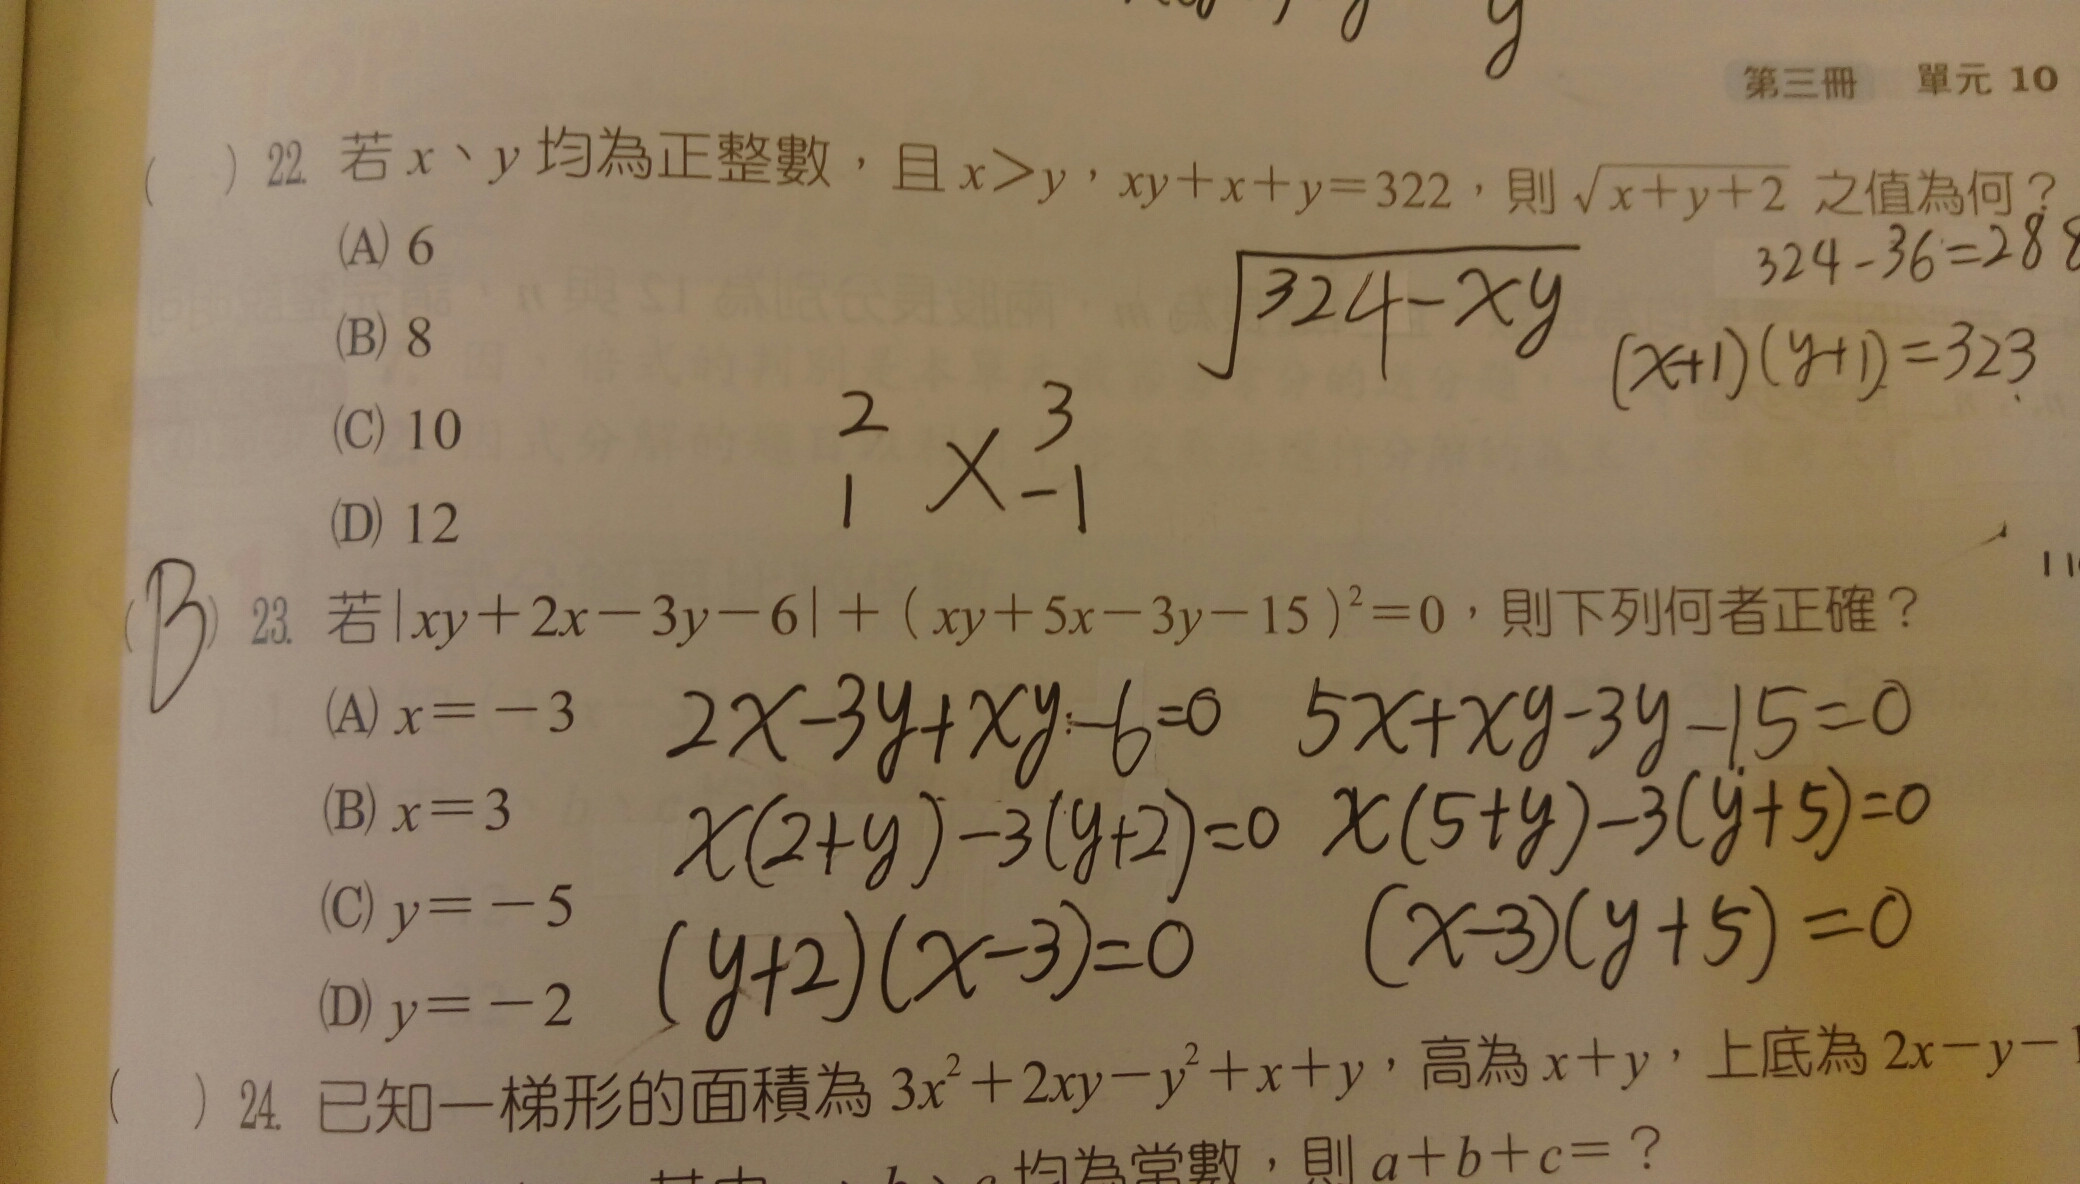 y
第三冊 單元 10
( ) 22. 若 x、y 均為正整數，且 x＞y，xy＋x＋y＝322，則 √x＋y＋2 之值為何？
(A) 6
324-36=288
√324-xy
(B) 8
(x+1)(y+1)=323
(C) 10
2 3
1 X -1
(D) 12
(B) 23. 若|xy＋2x－3y－6|＋(xy＋5x－3y－15)²＝0，則下列何者正確？
(A) x＝－3 2x-3y+xy-6=0 5x+xy-3y-15=0
(B) x＝3 x(2+y)-3(y+2)=0 x(5+y)-3(y+5)=0
(C) y＝－5 (y+2)(x-3)=0 (x-3)(y+5)=0
(D) y＝－2
( ) 24. 已知一梯形的面積為 3x²＋2xy－y²＋x＋y，高為 x＋y，上底為 2x－y－1
均為常數，則 a＋b＋c＝？